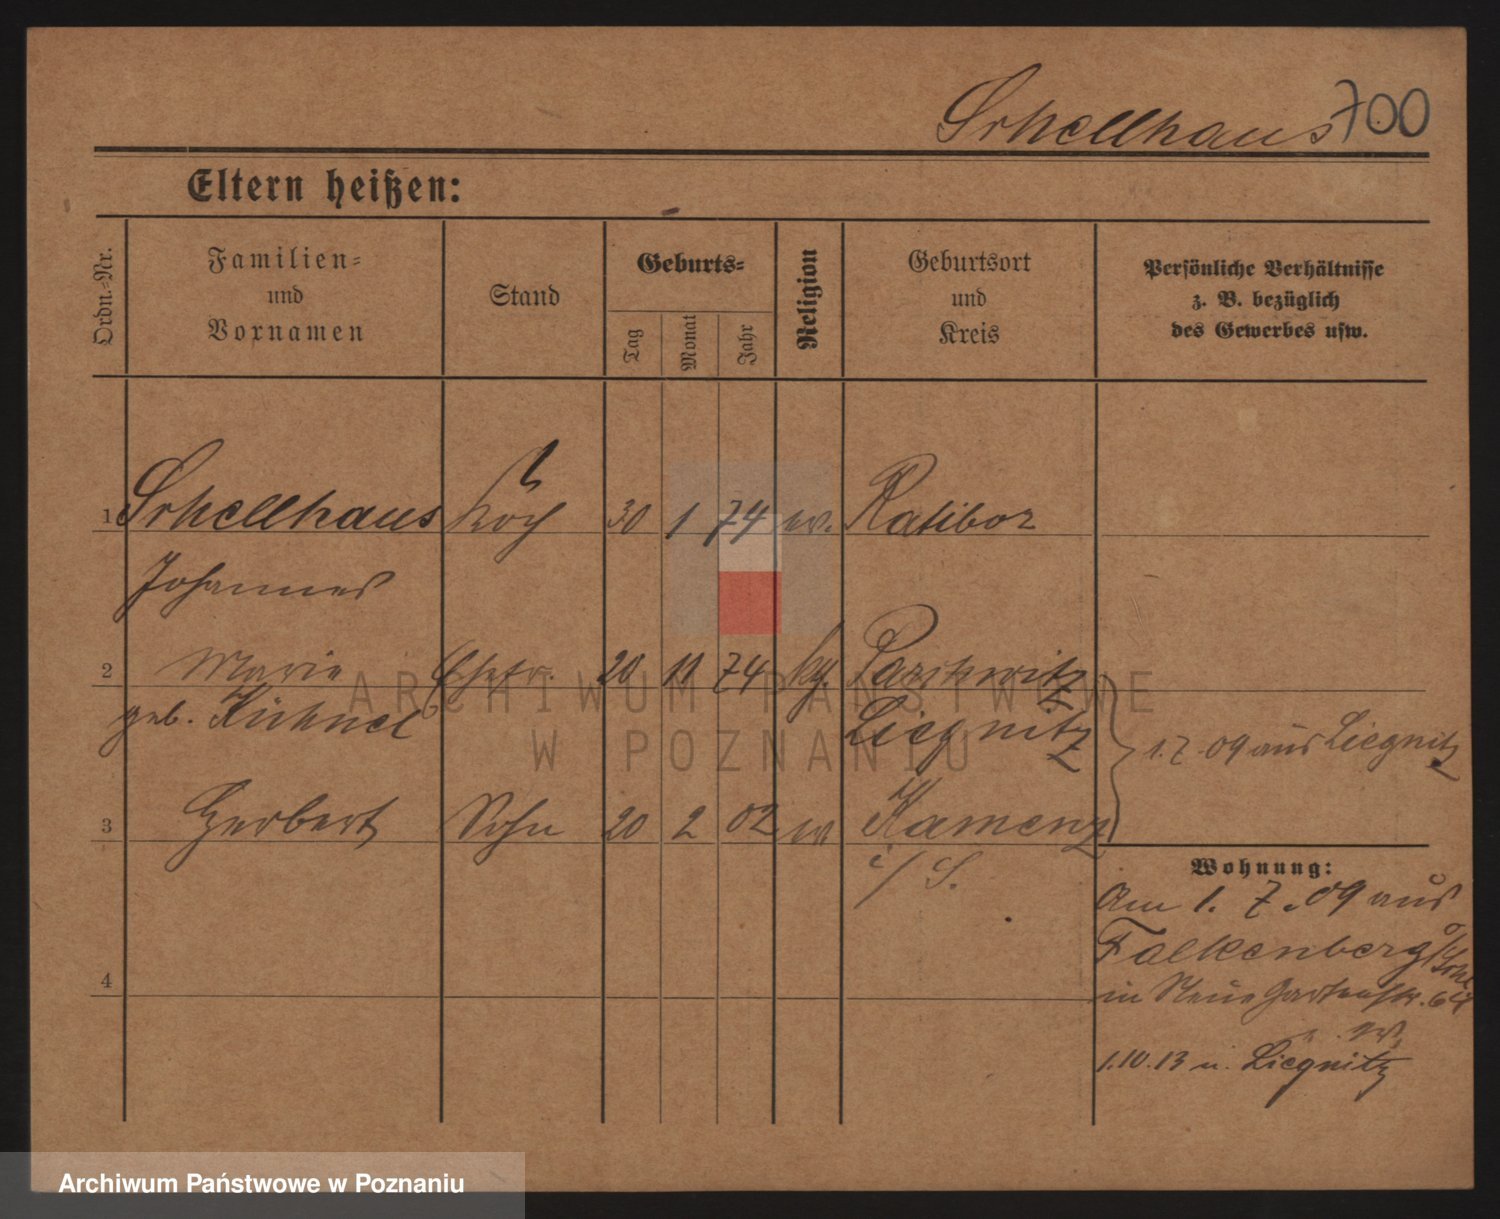 Schellhaus 700
Eltern heißen:
Ordn.-Nr.
Familien-
und
Vornamen
Stand
Geburts-
Tag
Monat
Jahr
Religion
Geburtsort
und
Kreis
Persönliche Verhältnisse
z. B. bezüglich
des Gewerbes usw.
1 Schellhaus Koch 30 1 74 ev. Ratibor
Johannes
2 Marie Ehefr. 20 11 74 kg. Parchwitz
geb. Kühnel Liegnitz
1.7.09 aus Liegnitz
3 Herbert Sohn 20 2 02 ev Kamenz
i/S.
Wohnung:
Am 1. 7. 09 aus
Falkenberg
4
in Neue Gartenstr. 64
1.10.13 n. Liegnitz
ARCHIWUM PAŃSTWOWE
W POZNANIU
Archiwum Państwowe w Poznaniu